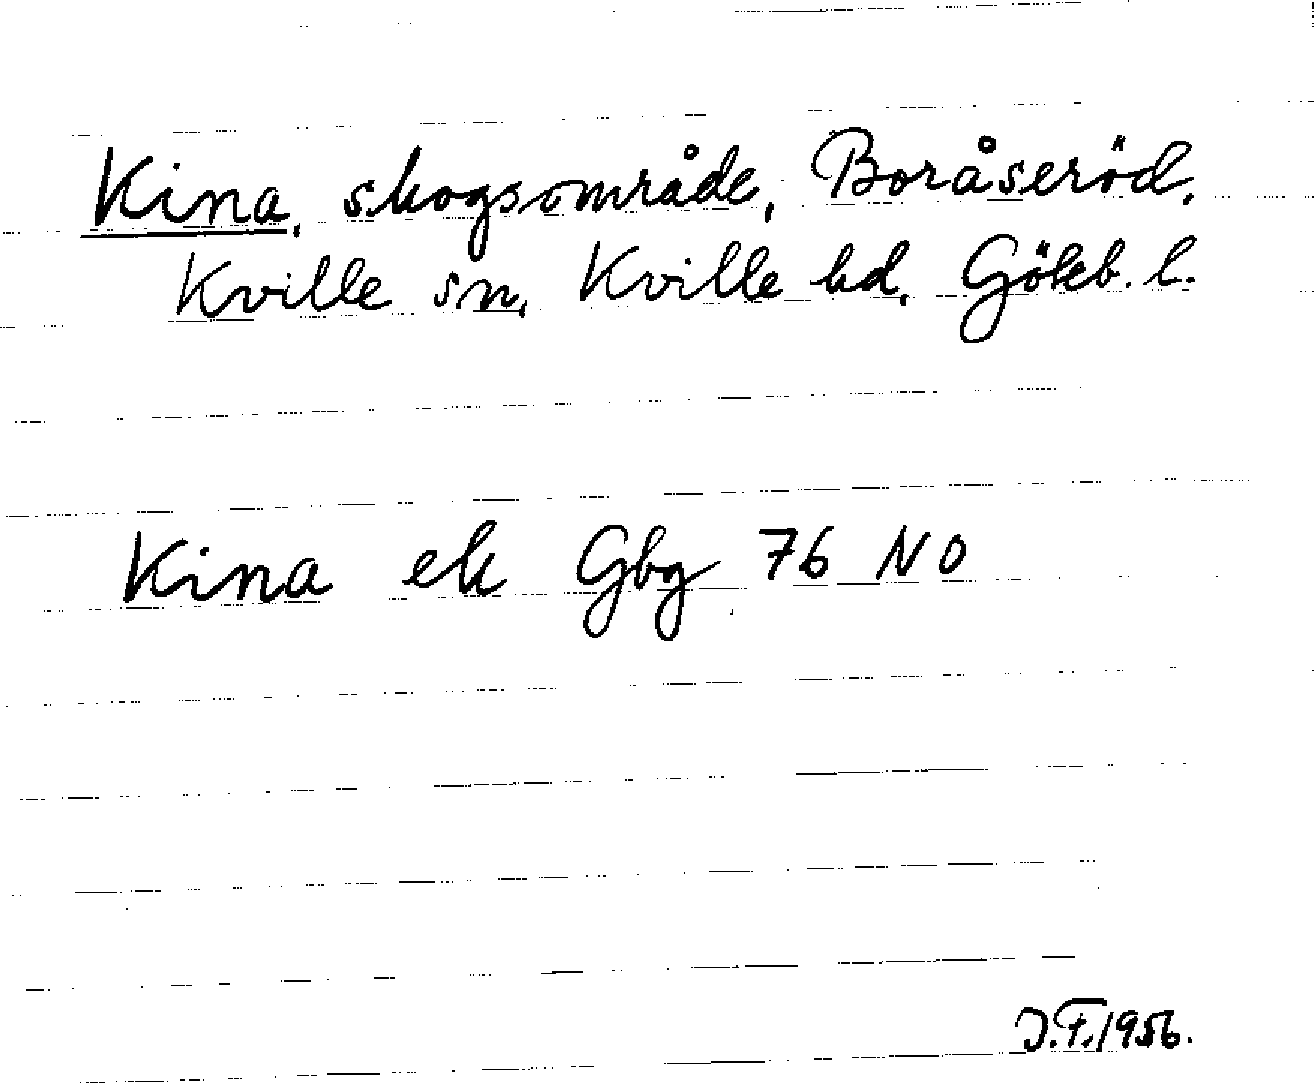 Kina, skogsområde, Boråseröd,
Kville sn, Kville hd, Göteb. l.
Kina ek Gbg 76 NO
J.F. 1956.